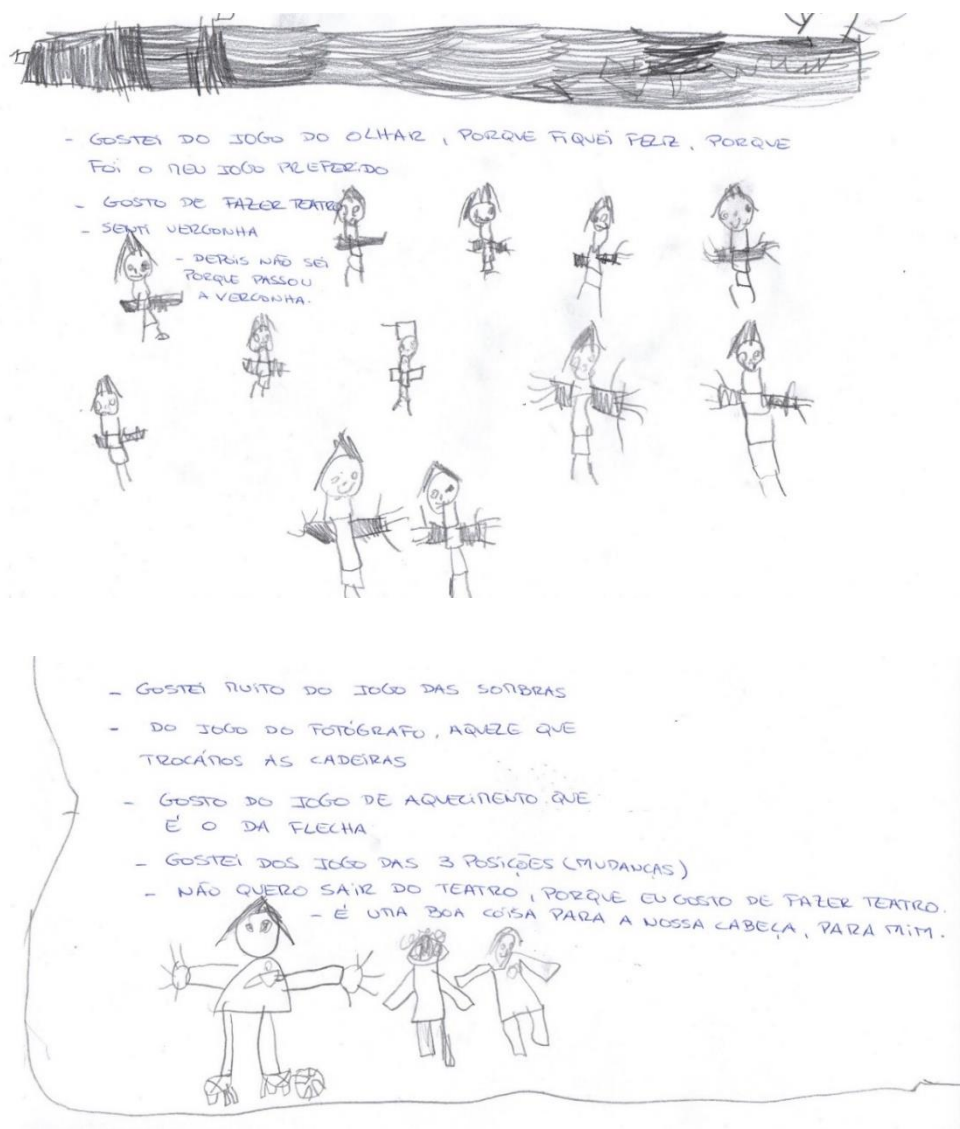 - GOSTEI DO JOGO DO OLHAR, PORQUE FIQUEI FELIZ, PORQUE
FOI O MEU JOGO PREFERIDO
- GOSTO DE FAZER TEATRO
- SENTI VERGONHA
- DEPOIS NÃO SEI
PORQUE PASSOU
A VERGONHA.
- GOSTEI MUITO DO JOGO DAS SOMBRAS
- DO JOGO DO FOTÓGRAFO, AQUELE QUE
TROCÁMOS AS CADEIRAS
- GOSTO DO JOGO DE AQUECIMENTO QUE
É O DA FLECHA
- GOSTEI DOS JOGO DAS 3 POSIÇÕES (MUDANÇAS)
- NÃO QUERO SAIR DO TEATRO, PORQUE EU GOSTO DE FAZER TEATRO.
- É UMA BOA COISA PARA A NOSSA CABEÇA, PARA MIM.